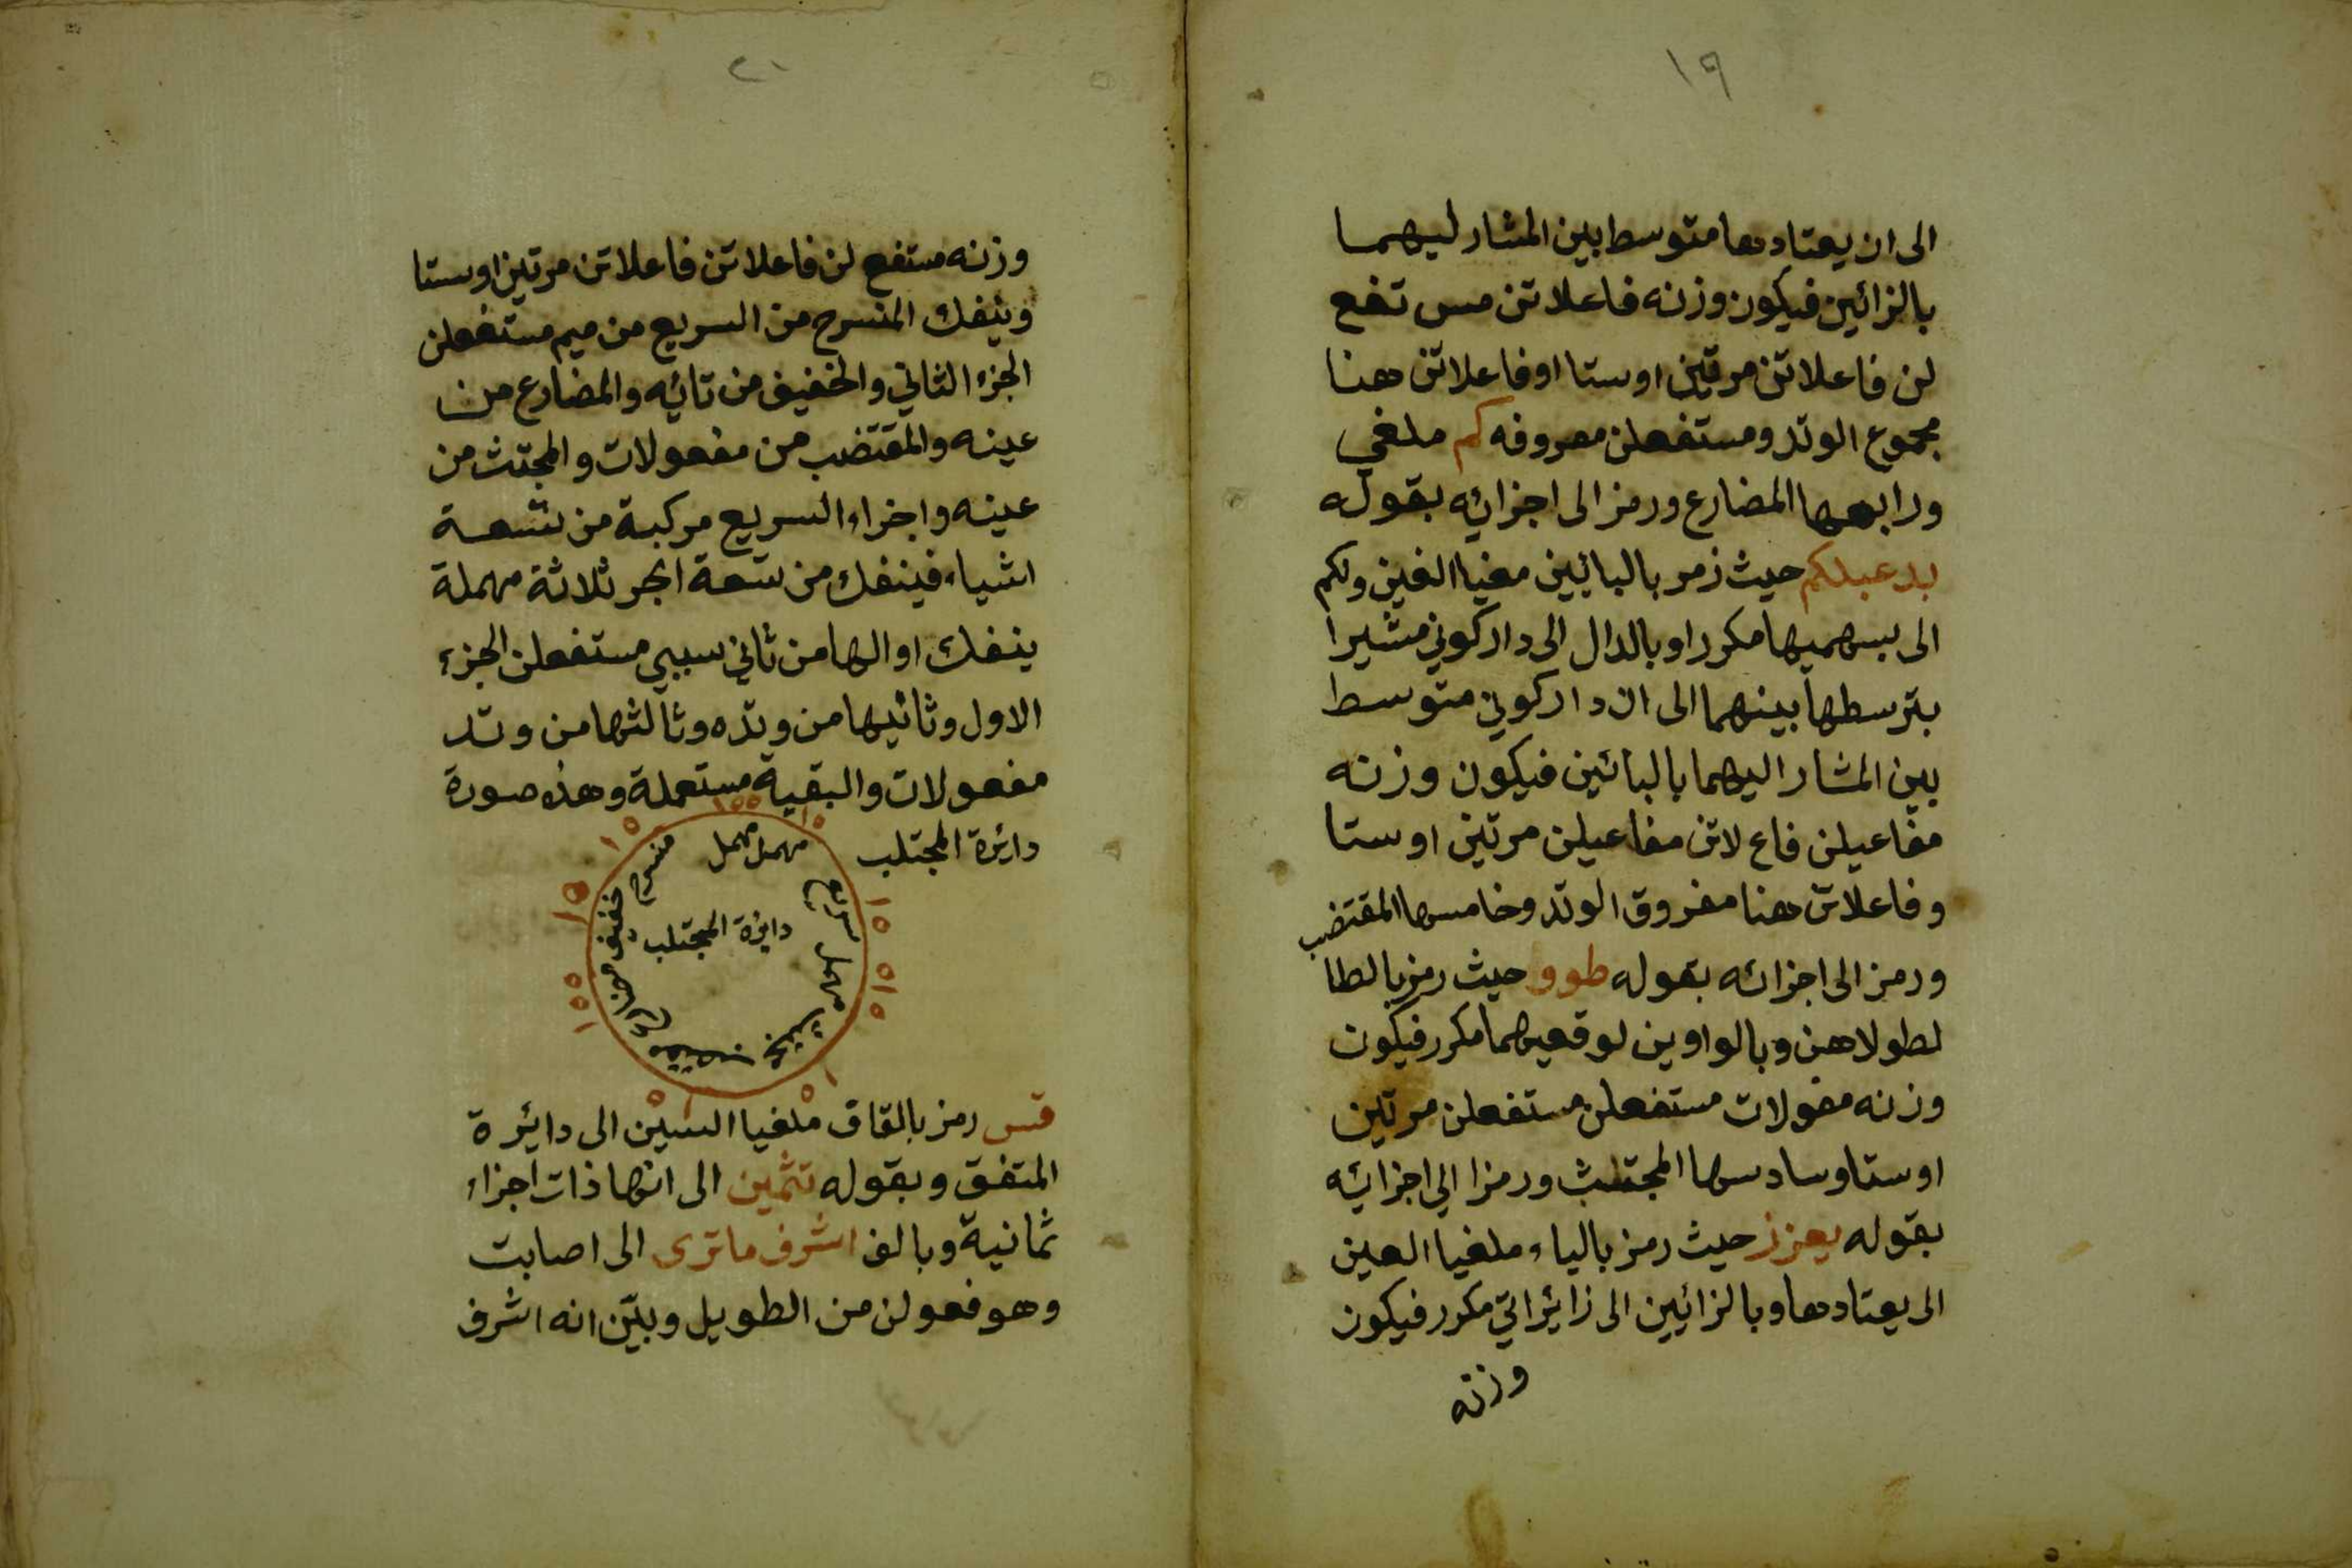 ١٩
الى ان يعتادها متوسط بين المشار ليهما
بالزائين فيكون وزنه فاعلاتن مس تفع
لن فاعلاتن مرتين او ستا او فاعلاتن هنا
مجموع الوتد ومستفعلن معروفه كم ملغي
ورابعها المضارع ورمز الى اجزائه بقوله
بدعبلكم حيث زمر بالبائين مغيا الغين ولكم
الى بسهميها مكررا وبالدال الى داركوني مشيرا
بترسطها بينهما الى ان داركوني متوسط
بين المشار اليهما بالبائين فيكون وزنه
مفاعيلن فاع لاتن مفاعيلن مرتين او ستا
وفاعلاتن هنا مفروق الوتد وخامسها المقتضب
ورمز الى اجزائه بقوله طوو حيث رمز بالطا
لطولاهن وبالواوين لوقعيهما مكرر فيكون
وزنه مفولات مستفعلن مستفعلن مرتين
او ستا وسادسها المجتث ورمزا الي اجزائه
بقوله يعزز حيث رمز بالياء ملغيا العين
الى يعتادها وبالزائين الى زائراتي مكرر فيكون
وزنه
٢١
وزنه مستفع لن فاعلاتن فاعلاتن مرتين او ستا
وينفك المنسرح من السريع من ميم مستفعلن
الجزء الثاني والخفيف من تائه والمضارع من
عينه والمقتضب من مفعولات والمجتث من
عينه واجزاء السريع مركبة من تسعة
اشياء فينفك من تسعة ابحر ثلاثة مهملة
ينفك اوالها من ثاني سببي مستفعلن الجزء
الاول وثانيها من وتده وثالثها من وتد
مفعولات والبقية مستعملة وهذه صورة
دائرة المجتلب
مهمل مهمل
منسرح
سريع
خفيف
دائرة المجتلب
قس رمز بالقاف ملغيا السين الى دائرة
المتفق وبقوله تثمين الى انها ذات اجزاء
ثمانية وبالف اشرف ماترى الى اصابت
وهو فعولن من الطويل وبيّن انه اشرف